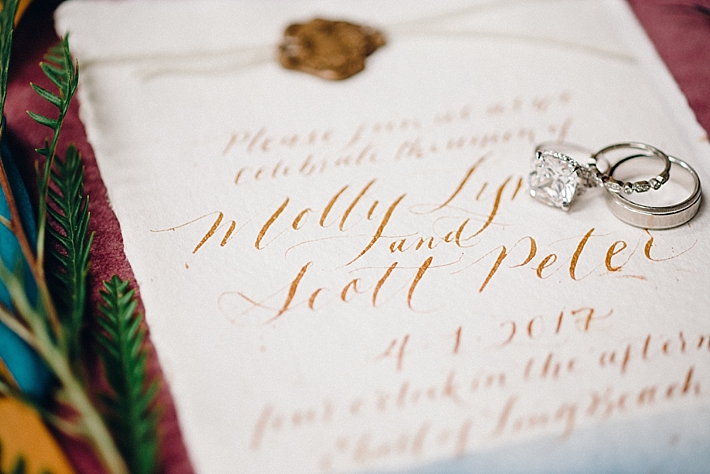 Please join us as we
celebrate the union of
Molly Lyn
and
Scott Peter
4.1.2017
four o'clock in the aftern
of Long Beach